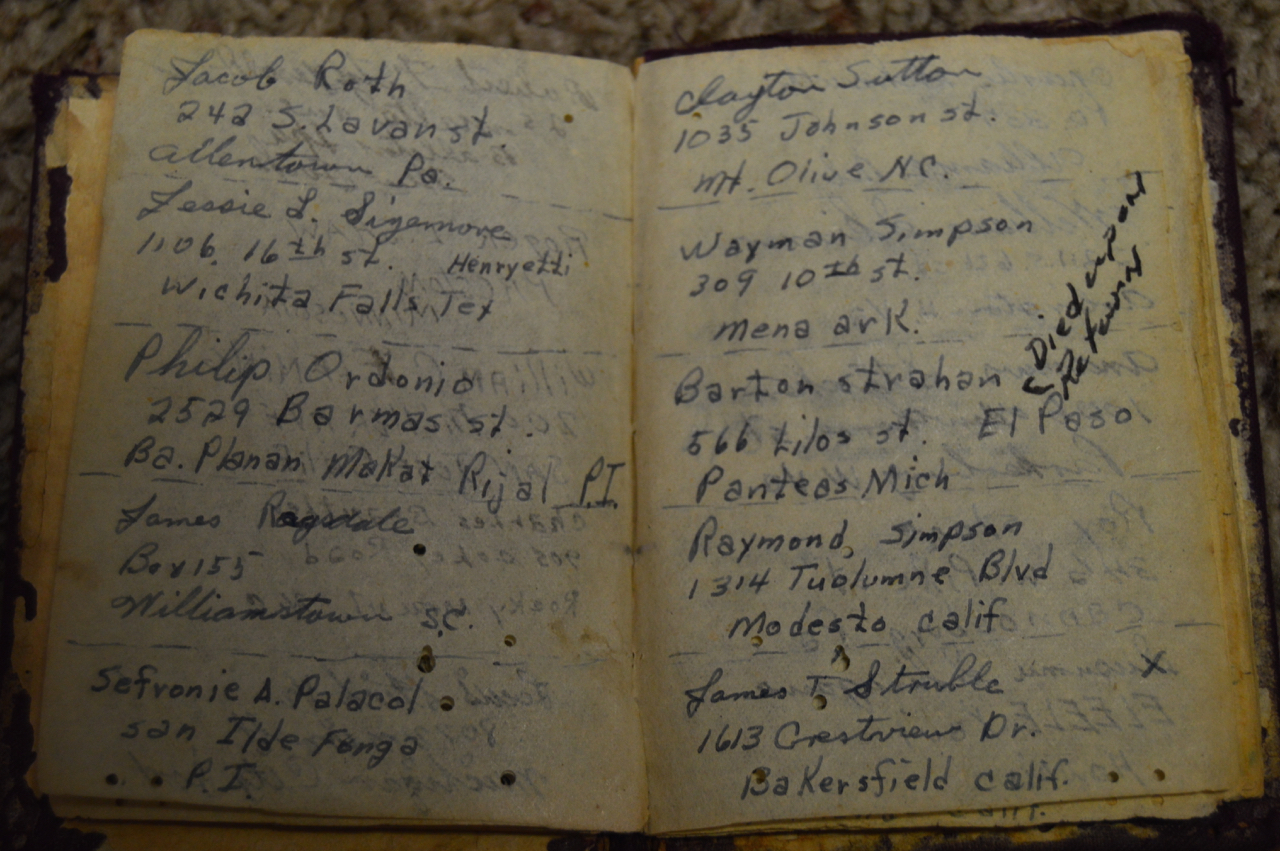 Jacob Roth
242 S. Lavan st.
Allentown Pa.
Jessie L. Sizemore
1106 16th st. Henryetti
Wichita Falls Tex
Philip Ordonio
2529 Barmas st.
Ba. Planan Makat Rijal P.I.
James Ragsdale
Box 155
Williamstown S.C.
Sefronie A. Palacol
san Ilde Fonga
P.I.
Clayton Sutton
1035 Johnson st.
Mt. Olive N.C.
Wayman Simpson
309 10th st.
mena ark.
Barton strahan
(Died upon
Return
566 Lilos st. El Paso
Panteas Mich
Raymond, Simpson
1314 Tuolumne Blvd
Modesto calif
James T. Struble X
1613 Crestview Dr.
Bakersfield calif.